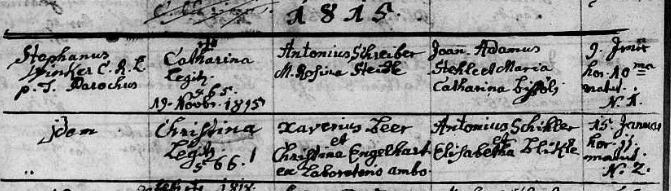 1815.
Stephanus
Winker C. R. L.
p. T. Parochus
Catharina
Legit.
565.
19. Novbr. 1815
Antonius Schreiber
M. Rosina Steidle
Joan. Adamus
Stehle et Maria
Catharina
9. Jan
hor. 10 ma
matut.
N. 1.
Idem
Christina
Legit.
566.
Xaverius Beer
et
Christina Engelhart
ex Laboreteno ambo
Antonius Schibler
et
Elisabetha Blikle
15. Januar
hor. 11
matut.
N. 2.